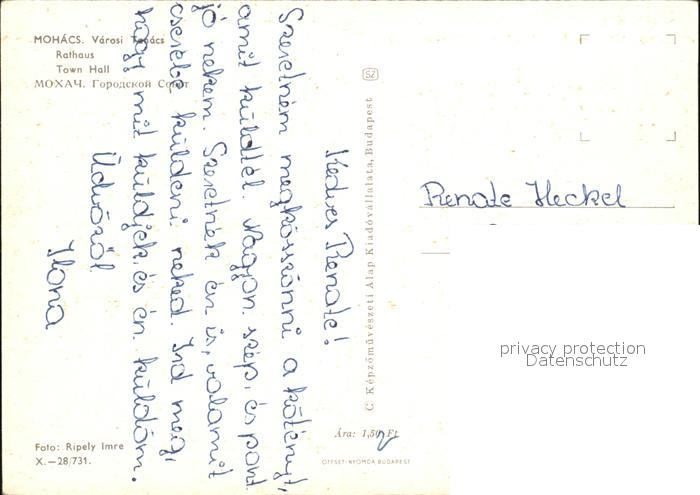 MOHÁCS. Városi Tanács
Rathaus
Town Hall
МОХАЧ. Городской Совет
Kedves Renate!
Szeretném megköszönni a kötényt,
amit küldtél. Nagyon szép, és pont
jó nekem. Szeretnék én is, valamit
cserébe küldeni neked. Írd meg,
hogy mit küldjek, és én küldöm.
Üdvözöl
Ilona
Foto: Ripely Imre
X.—28/731.
SZ
C Képzőművészeti Alap Kiadóvállalata, Budapest
Ára: 1,50 Ft
OFFSET-NYOMDA BUDAPEST
Renate Heckel
privacy protection
Datenschutz